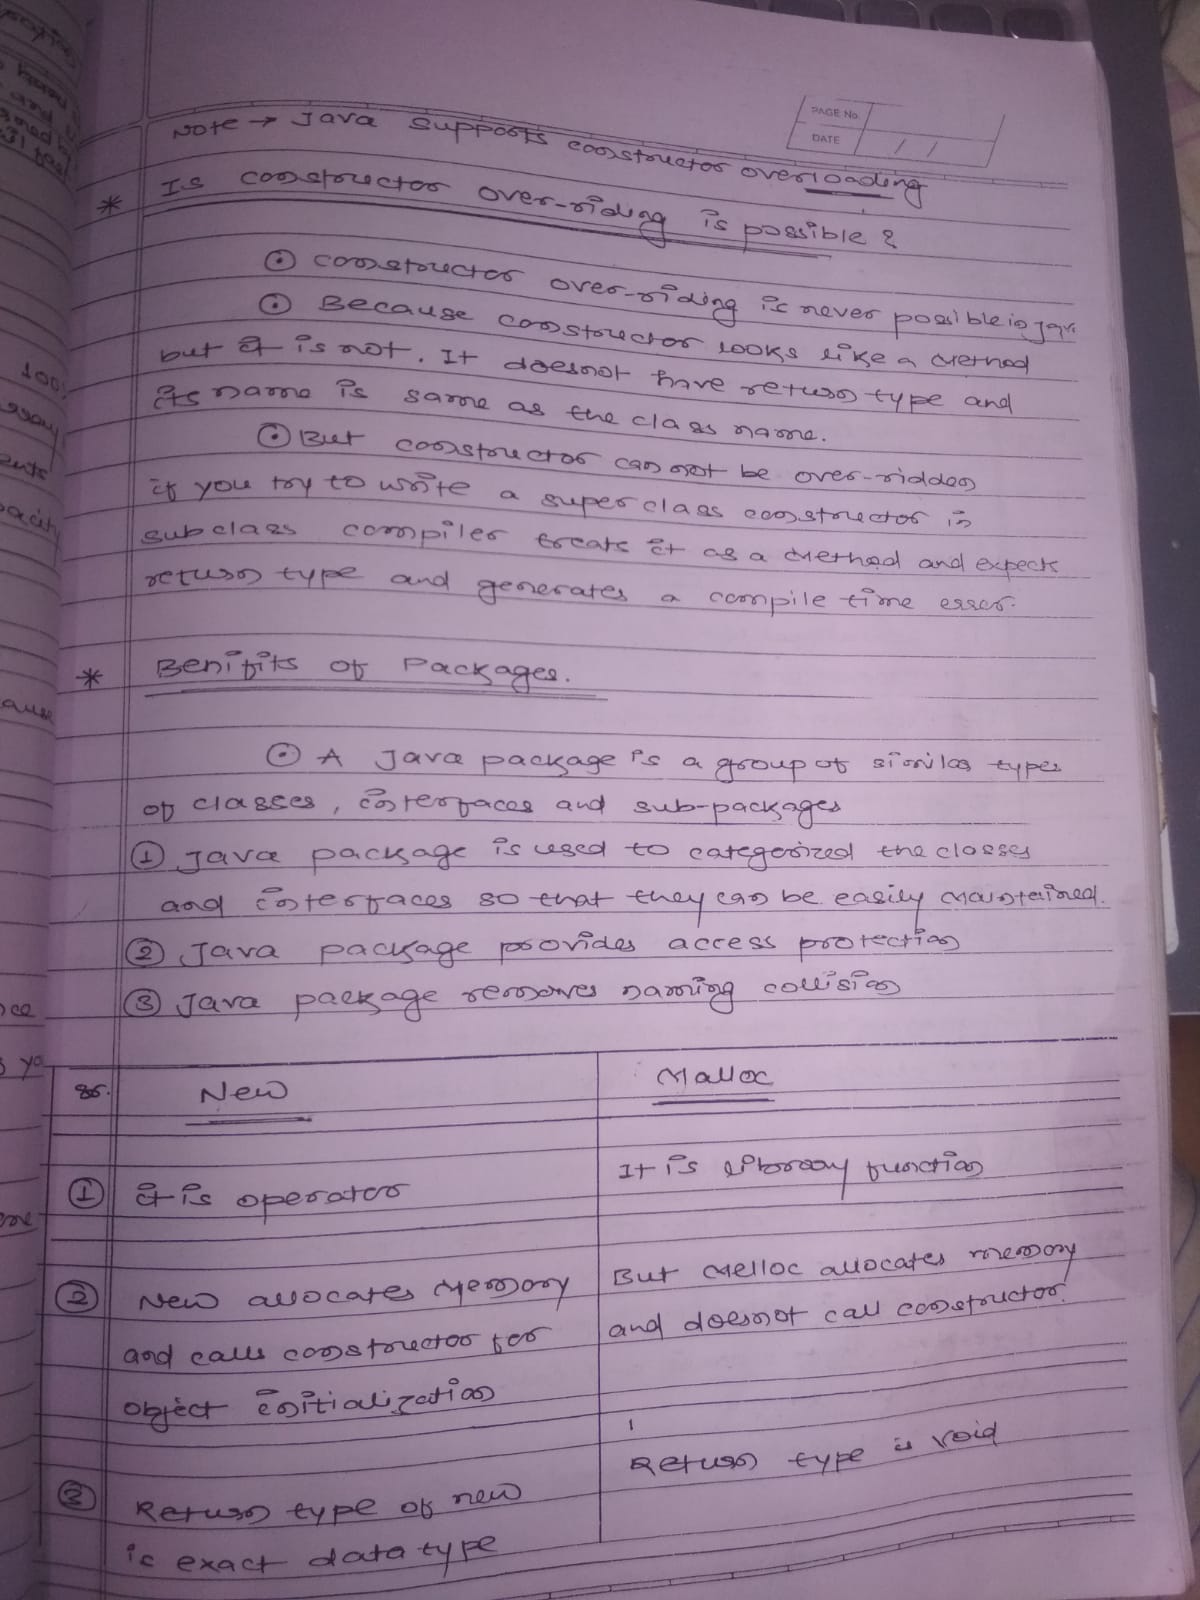 PAGE No.
DATE / /
Note → Java supports constructor overloading
* Is constructor over-riding is possible ?
⊙ constructor over-riding is never possible in java
⊙ Because constructor looks like a method
but it is not. It doesnot have return type and
its name is same as the class name.
⊙ But constructor can not be over-ridden
if you try to write a super class constructor in
subclass compiler treats it as a method and expects
return type and generates a compile time error.
* Benifits of Packages.
⊙ A Java package is a group of similar types
of classes, interfaces and sub-packages
① Java package is used to categorized the classes
and interfaces so that they can be easily maintained.
② Java package provides access protection
③ Java package removes naming collision
sr. New Malloc
① it is operator It is library function
② New allocates memory But melloc allocates memory
and calls constructor for and doesnot call constructor.
object initialization
③ Return type of new Return type is void
is exact data type
100
ause